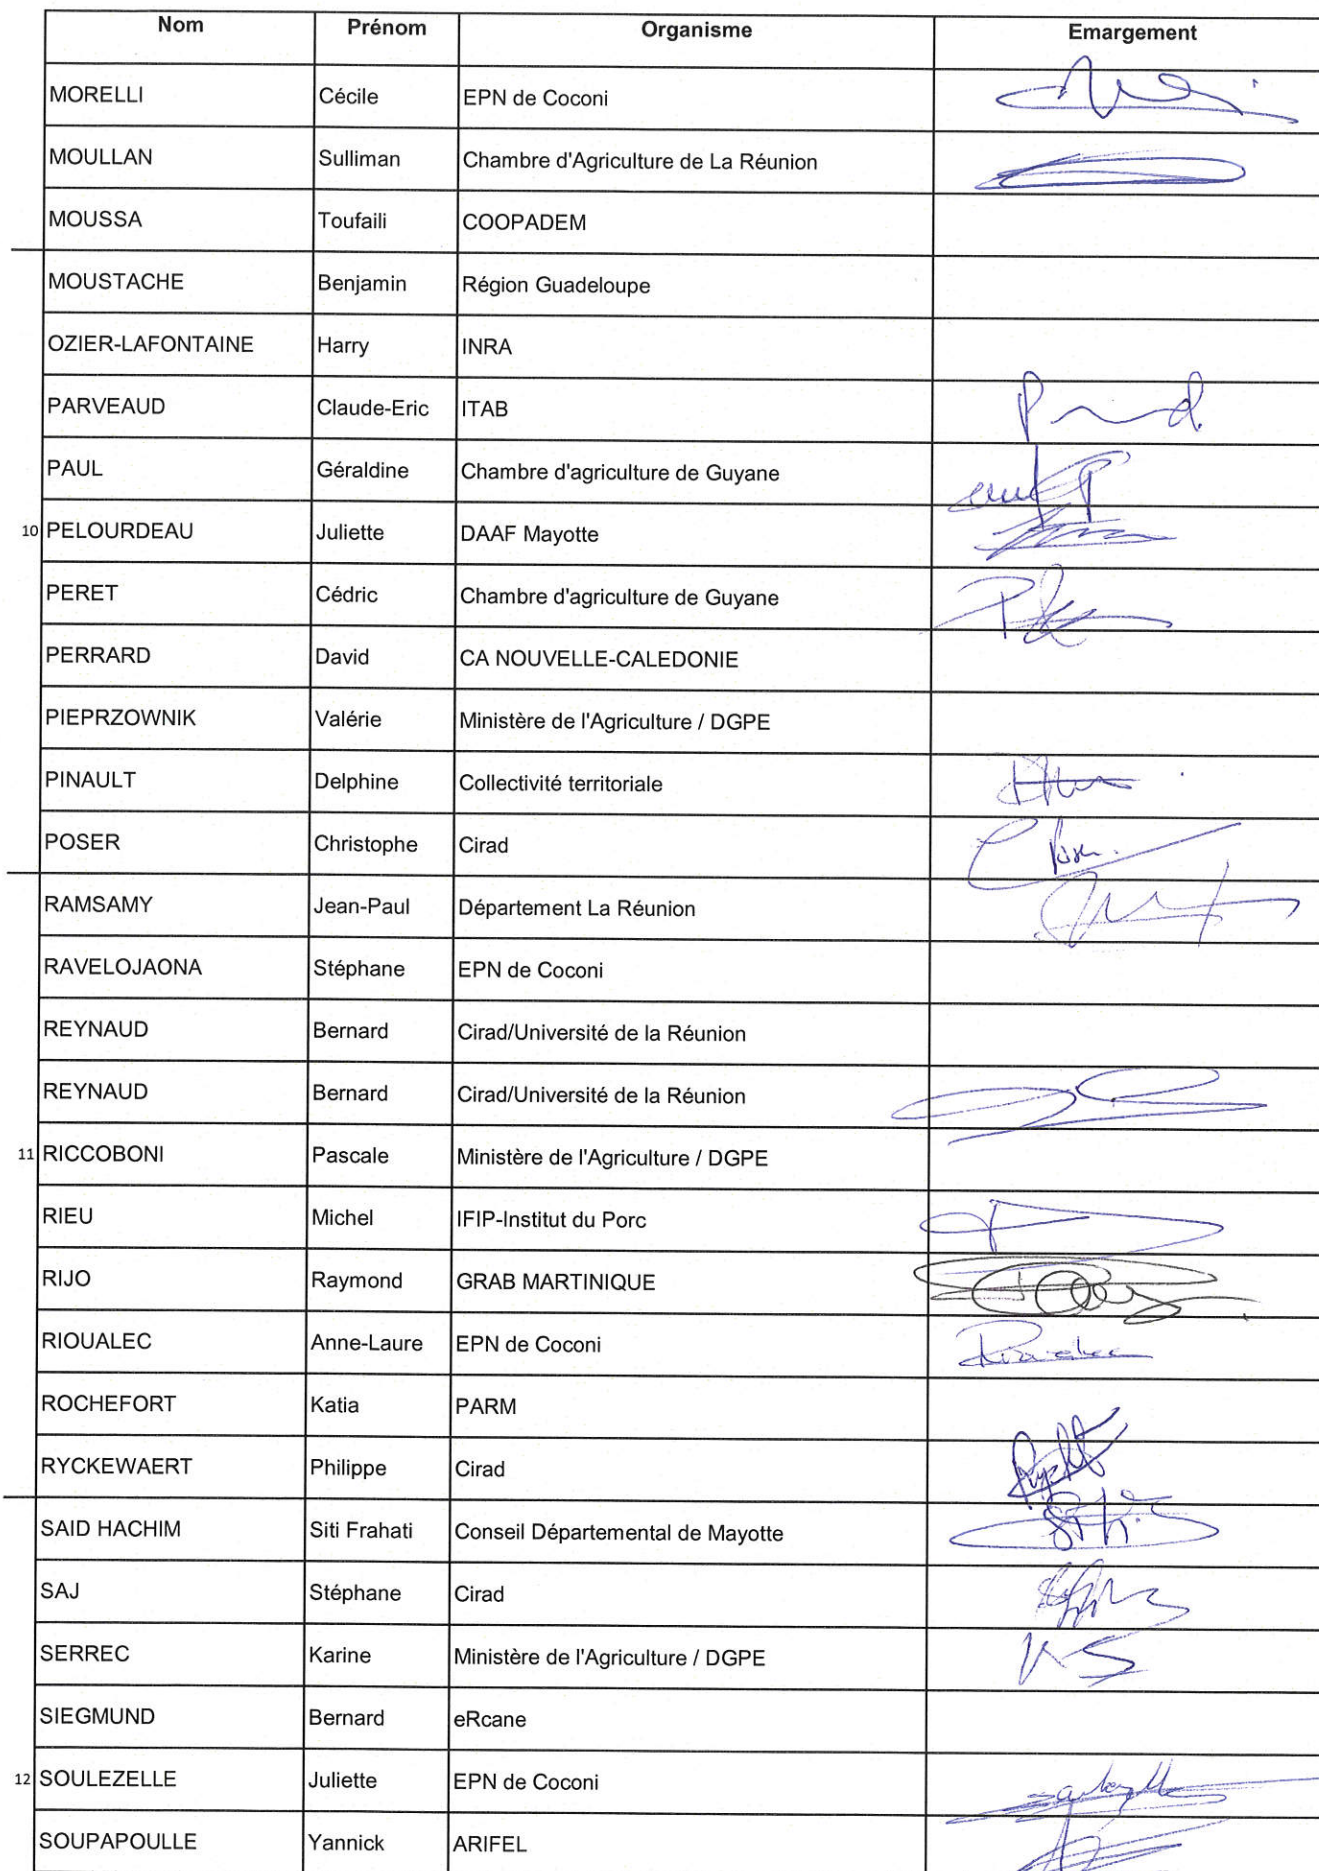 Nom Prénom Organisme Emargement
MORELLI Cécile EPN de Coconi
MOULLAN Sulliman Chambre d'Agriculture de La Réunion
MOUSSA Toufaili COOPADEM
MOUSTACHE Benjamin Région Guadeloupe
OZIER-LAFONTAINE Harry INRA
PARVEAUD Claude-Eric ITAB
PAUL Géraldine Chambre d'agriculture de Guyane
10 PELOURDEAU Juliette DAAF Mayotte
PERET Cédric Chambre d'agriculture de Guyane
PERRARD David CA NOUVELLE-CALEDONIE
PIEPRZOWNIK Valérie Ministère de l'Agriculture / DGPE
PINAULT Delphine Collectivité territoriale
POSER Christophe Cirad
RAMSAMY Jean-Paul Département La Réunion
RAVELOJAONA Stéphane EPN de Coconi
REYNAUD Bernard Cirad/Université de la Réunion
REYNAUD Bernard Cirad/Université de la Réunion
11 RICCOBONI Pascale Ministère de l'Agriculture / DGPE
RIEU Michel IFIP-Institut du Porc
RIJO Raymond GRAB MARTINIQUE
RIOUALEC Anne-Laure EPN de Coconi
ROCHEFORT Katia PARM
RYCKEWAERT Philippe Cirad
SAID HACHIM Siti Frahati Conseil Départemental de Mayotte
SAJ Stéphane Cirad
SERREC Karine Ministère de l'Agriculture / DGPE KS
SIEGMUND Bernard eRcane
12 SOULEZELLE Juliette EPN de Coconi
SOUPAPOULLE Yannick ARIFEL